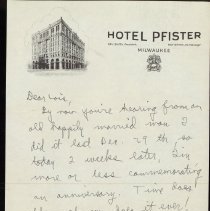 HOTEL PFISTER
MILWAUKEE
Dear Lois,
By now you're hearing from an
old happily married man I
did it last Dec. 29th so
today 2 weeks later, I'm
more or less commemorating
an anniversary. Time does
it ever!